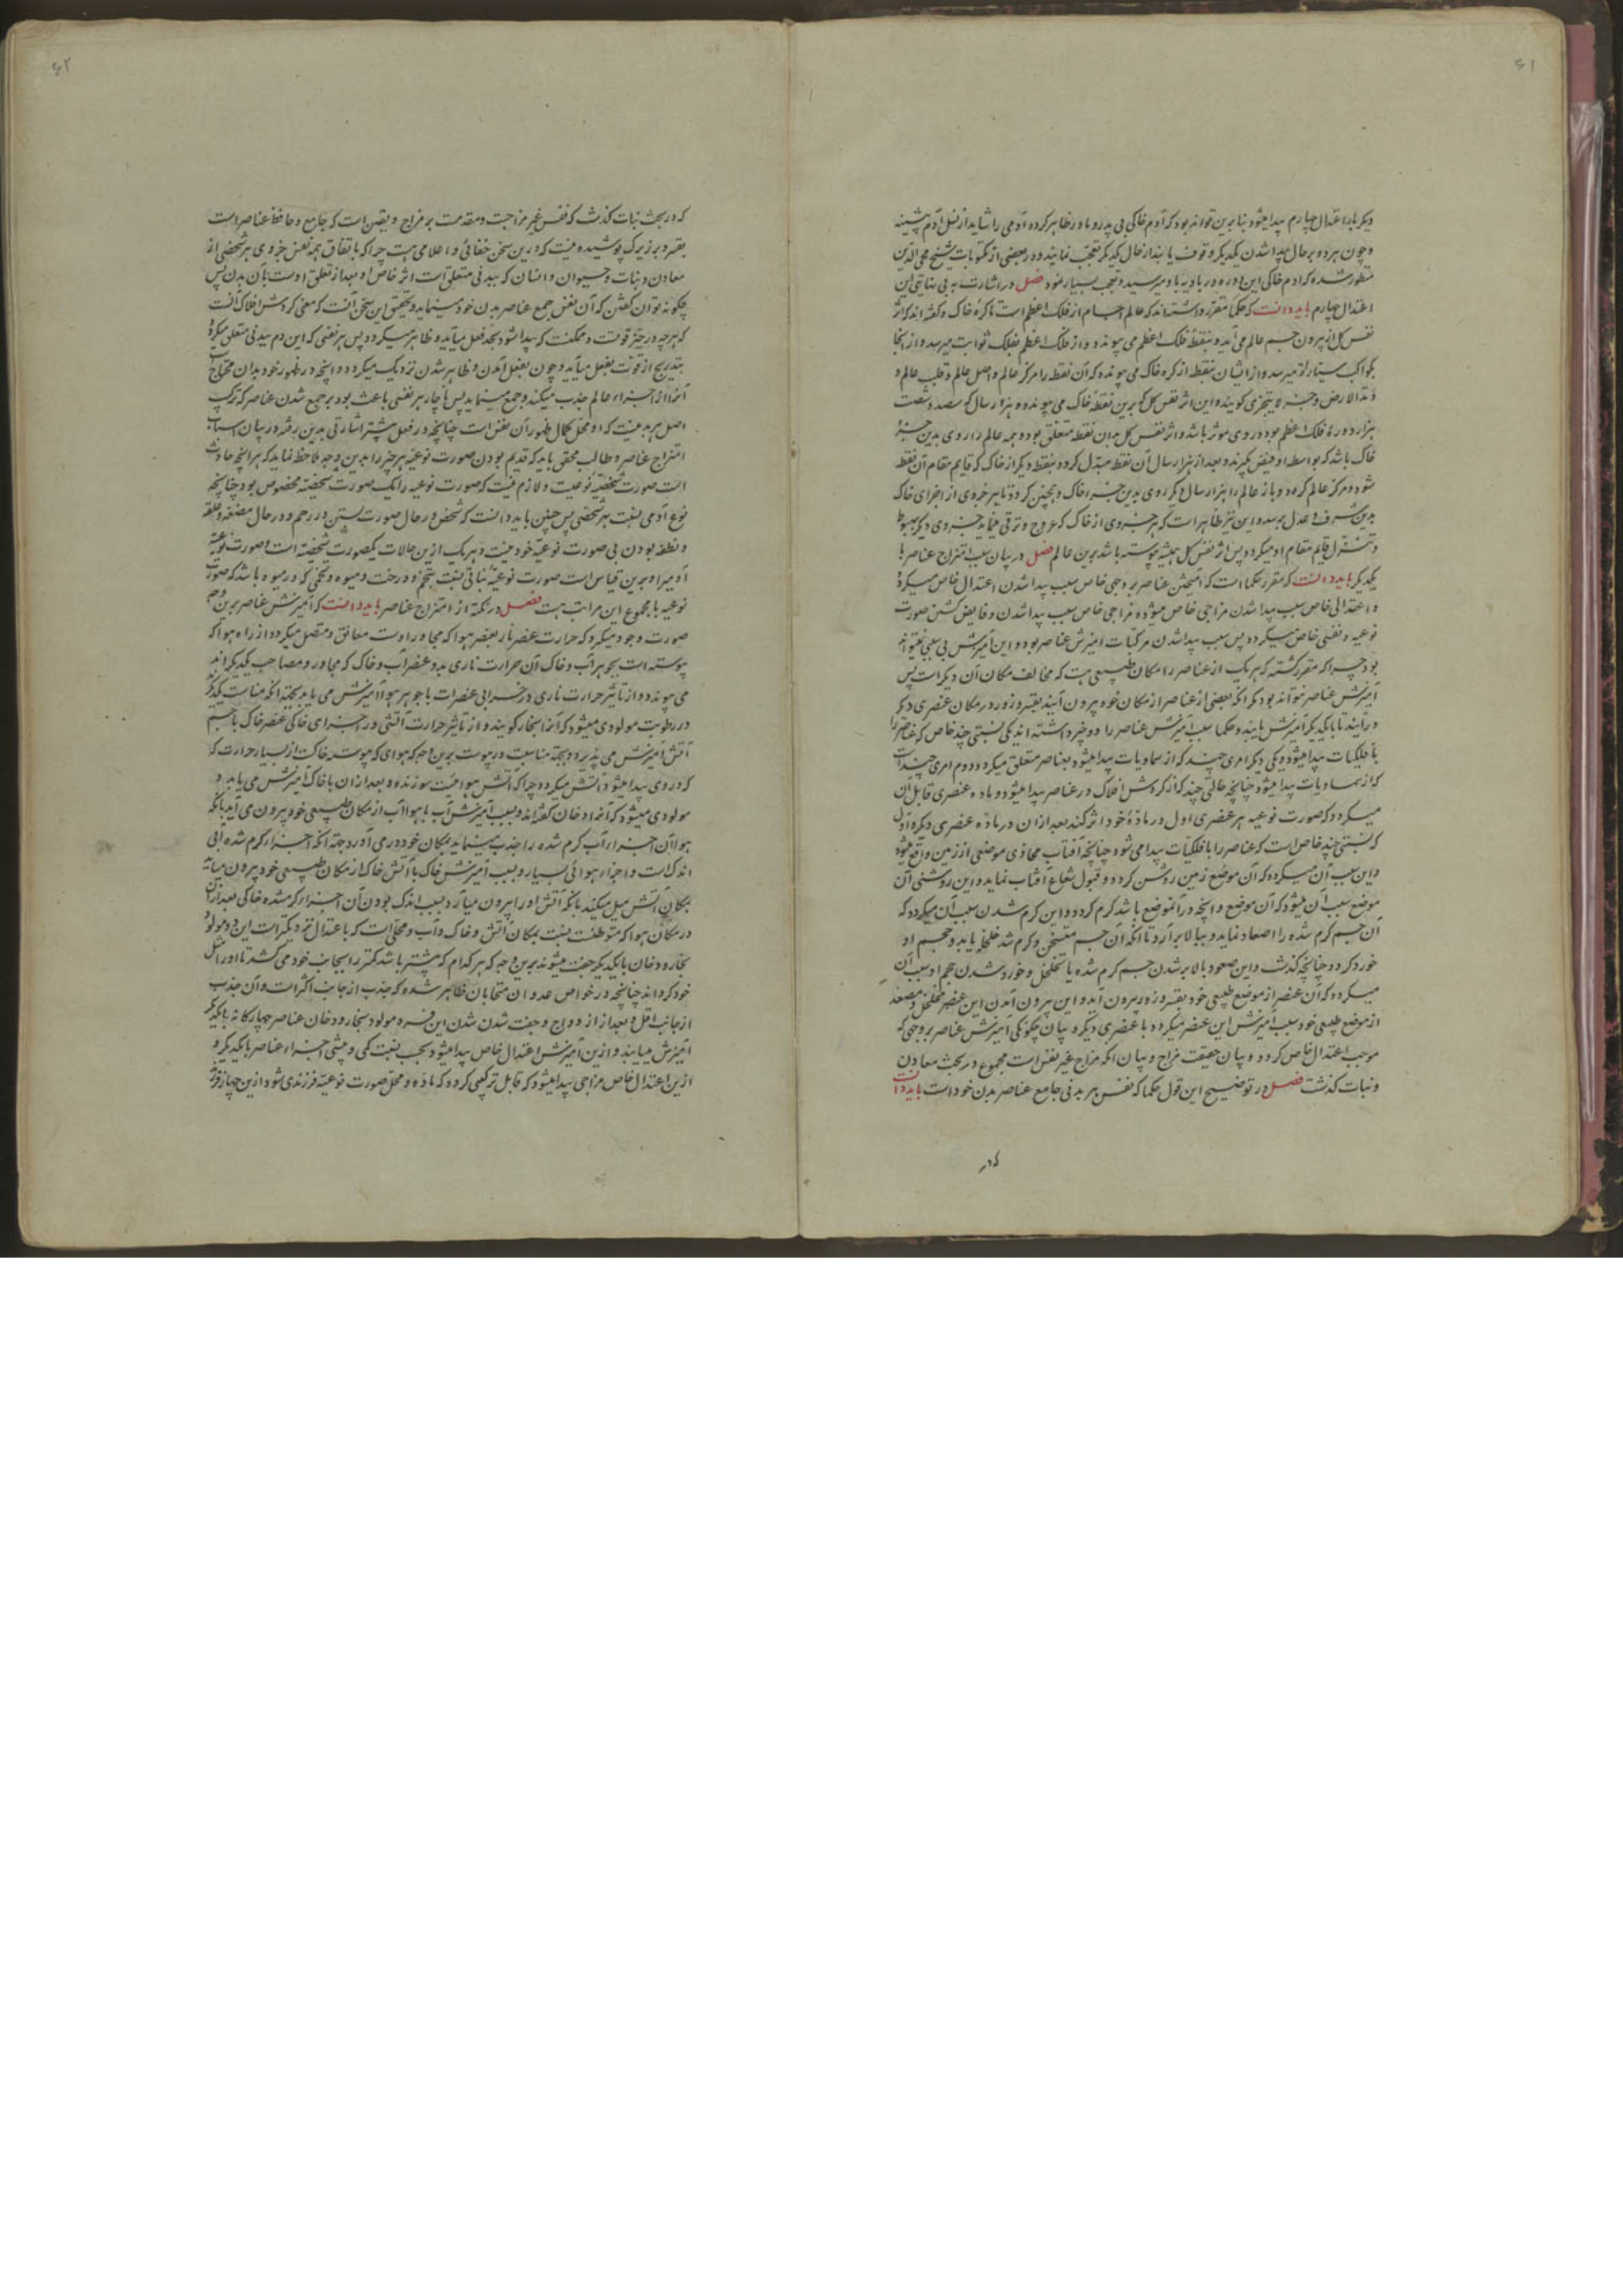 ۶۱
دیگر بار اعتدال چهارم پیدا میشود بنا برین تواند بود که آدم خاکی بی پدر و مادر ظاهر کردد و آدمی را شاید از نسل آدم پیشینه
و چون هر دو بر حال پیدا شدن یکدیگر وقوف یابند از حال یکدیگر تعجب نمایند و در بعضی از مکتوبات شیخ محی الدین
مسطور شده که آدم خاکی این دوره در بادیه باو میرسید و تعجب بسیار نمود فصل در اشارت به بی نهایتی این
اعتدال چهارم باید دانست که حکما مقرر داشته اند که عالم اجسام از فلک اعظم است تا کره خاک و گفته اند که اثر
نفس کل از بیرون جسم عالم می آید و بنقطه فلک اعظم می پیوندد و از فلک اعظم بفلک ثوابت میرسد و از آنجا
بکواکب سیاره میرسد و از ایشان بنقطه از کره خاک می پیوندد که آن نقطه را مرکز عالم و اصل عالم و قلب عالم و
وتد الارض و جزء لا یتجزی گویند و این اثر نفس کل که برین نقطه خاک می پیوندد و هزار سال که سیصد و شصت
هزار دوره فلک اعظم بود در وی موثر باشد و اثر نفس کل بدان نقطه متعلق بود و همه عالم را روی بدین جزء
خاک باشد که بواسطه او فیض گیرند و بعد از هزار سال آن نقطه مبدل کردد بنقطه دیگر از خاک که قایم مقام آن نقطه
شود و مرکز عالم کردد و باز عالم را هزار سال دیگر روی بدین جزء خاک و همچنین کردد تا هر جزوی از اجزای خاک
بدین شرف و عدل برسد و این نیز ظاهر است که هر جزوی از خاک که عروج و ترقی نماید جزوی دیگر بهبوط
و تنزل قایم مقام او میکردد پس اثر نفس کل همیشه پیوسته باشد برین عالم فصل در بیان سبب امتزاج عناصر با
یکدیگر باید دانست که مقرر حکما است که آمیختن عناصر بر وجهی خاص سبب پیدا شدن اعتدال خاص میکردد
و اعتدالی خاص سبب پیدا شدن مزاجی خاص میشود و مزاجی خاص سبب پیدا شدن و فایض کشتن صورت
نوعیه و نفسی خاص میکردد پس سبب پیدا شدن مرکبات آمیزش عناصر بود و این آمیزش بی سببی نمیتواند
بود چرا که مقرر کشته که هر یک از عناصر را مکان طبیعی هست که مخالف مکان آن دیگر است پس
آمیزش عناصر نتواند بود مکر آنکه بعضی از عناصر از مکان خود بیرون آیند بقسر و زور و در مکان عنصری دیگر
درآیند تا با یکدیگر آمیزش یابند و حکما سبب آمیزش عناصر را دو چیز داشته اند یکی نسبتی چند خاص که عناصر را
با فلکیات پیدا میشود و یکی دیگر امری چند که از سماویات پیدا میشود و بعناصر متعلق میکردد و دوم امری چند است
که از سماویات پیدا میشود چنانچه حالتی چند که از گردش افلاک در عناصر پیدا میشود و ماده عنصری قابل آن
میکردد که صورت نوعیه هر عنصری اول در ماده خود اثر کند بعد از آن در ماده عنصری دیگر و اول
که نسبتی چند خاص است که عناصر را با فلکیات پیدا می شود چنانچه آفتاب محاذی موضعی از زمین واقع میشود
و این سبب آن میکردد که آن موضع زمین روشن کردد و قبول شعاع آفتاب نماید و این روشنی آن
موضع سبب آن میشود که آن موضع و آنچه در آن موضع باشد کرم کردد و این کرم شدن سبب آن میکردد که
آن جسم کرم شده را اصعاد نماید و ببالا برآرد تا آنکه آن جسم متسخن و کرم شده تخلخل یابد و حجم او
خورد کردد چنانچه گذشت و این صعود بالا بر شدن جسم کرم شده یا تخلخل و خورد شدن حجم او سبب آن
میکردد که آن عنصر از موضع طبیعی خود بقسر و زور بیرون آید و این بیرون آمدن این عنصر متخلخل و متصعد
از موضع طبیعی خود سبب آمیزش این عنصر میکردد با عنصری دیگر و بیان چکونکی آمیزش عناصر بر وجهی که
موجب اعتدال خاص کردد و بیان حقیقت مزاج و بیان آنکه مزاج غیر نفس است مجموع در بحث معادن
و نبات گذشت فصل در توضیح این قول حکما که نفس هر بدنی جامع عناصر بدن خود است باید دانست
که در
۶۲
که در بحث نبات گذشت که نفس غیر مزاجست و مقدمست بر مزاج و بیقین است که جامع و حافظ عناصر است
بقسر و بر زیرک پوشیده نیست که درین سخن خفائی و اعلامی هست چرا که باتفاق همه نفس جزوی هر شخصی از
معادن و نبات و حیوان و انسان که ببدنی متعلق است اثر خاص او بعد از تعلق اوست بآن بدن پس
چکونه توان گفتن که آن نفس جمع عناصر بدن خود مینماید و تحقیق این سخن آنست که معنی گردش افلاک آنست
که هر چه در حیز قوتست و ممکنست که پیدا شود بحد فعل میآید و ظاهر میکردد پس هر نفسی که این دم ببدنی متعلق میکردد
بتدریج از قوت بفعل میآید و چون بفعل آمدن و ظاهر شدن نزدیک میکردد و آنچه در ظهور خود بدان محتاج است
آنرا از اجزاء عالم جذب میکند و جمع مینماید پس ناچار هر نفسی باعث بود بر جمع شدن عناصر که ترکیب
اصل هر بدنیست که او محل کمال ظهور آن نفس است چنانچه در فصل پیشتر اشارتی بدین رفته در بیان اسباب
امتزاج عناصر و طالب محقق باید که قدیم بودن صورت نوعیه هر چیز را بدین وجه ملاحظه نماید که هر آنچه حادث
است صورت شخصیه نوعست و لازم نیست که صورت نوعیه را یک صورت شخصیه مخصوص بود چنانچه
نوع آدمی نسبت بهر شخصی پس چنین باید دانست که شخص در حال صورت بستن در رحم و در حال مضغه و علقه
و نطفه بودن بی صورت نوعیه خود نیست و هر یک ازین حالات یک صورت شخصیه است و صورت نوعیه
آدمیرا و برین قیاس است صورت نوعیه نباتی نسبت بتخم و درخت و میوه و تخمی که در میوه باشد که صورت
نوعیه با مجموع این مراتب هست فصل در نکته از امتزاج عناصر باید دانست که آمیزش عناصر برین وجه
صورت وجود میکیرد که حرارت عنصر نار بعنصر هوا که مجاور اوست معانق و متصل میکردد و از راه هوا که
پیوسته است بجوهر آب و خاک آن حرارت ناری بدو عنصر آب و خاک که مجاور و مصاحب یکدیگر اند
می پیوندد و از تاثیر حرارت ناری در اجزای عنصر آب با جوهر هوا آمیزش می یابد بجهت آنکه مناسبت یکدیگر
در رطوبت مولودی میشود که آنرا بخار گویند و از تاثیر حرارت آتشی در اجزای خاکی عنصر خاک با جسم
آتش آمیزش می پذیرد و بجهة مناسبت در یبوست برین وجه که هوای که پیوسته خاکست از بسیار حرارت که
که در وی پیدا میشود آتش میکردد چرا که آتش هوائیست سوزنده و بعد از آن با خاک آمیزش می یابد و
مولودی میشود که آنرا دخان گفته اند و بسبب آمیزش آب با هوا آب از مکان طبیعی خود بیرون می آید بآنکه
هوا آن اجزاء آب کرم شده را جذب مینماید بمکان خود در می آورد بجهة آنکه اجزاء کرم شده آبی
اندک است و اجزاء هوائی بسیار و بسبب آمیزش خاک با آتش خاک از مکان طبیعی خود بیرون میآید
بمکان آتش میل میکند بآنکه آتش او را بیرون میآرد و بسبب اندک بودن آن اجزاء کرم شده خاکی بعد از آن
در مکان هوا که متوسطست نسبت بمکان آتش و خاک و آب و محلی است که باعتدال نزدیکتر است این دو مولود
بخار و دخان با یکدیگر جفت میشوند برین وجه که هر کدام که بیشتر باشد کمتر را بجانب خود می کشد تا او را مثل
خود کرداند چنانچه در خواص عدوان متحابان ظاهر شده که جذب از جانب اکثر است و آن جذب
از جانب اقل و بعد از ازدواج و جفت شدن این دو مولود بخار و دخان عناصر چهارکانه با یکدیگر
آمیزش مییابند و ازین آمیزش اعتدال خاص پیدا میشود بحسب نسبت کمی و بیشی اجزاء عناصر با یکدیگر و
ازین اعتدال خاص مزاجی پیدا میشود که قابل ترکیبی کردد که ماده و محل صورت نوعیه فرزندی شود ازین چهار